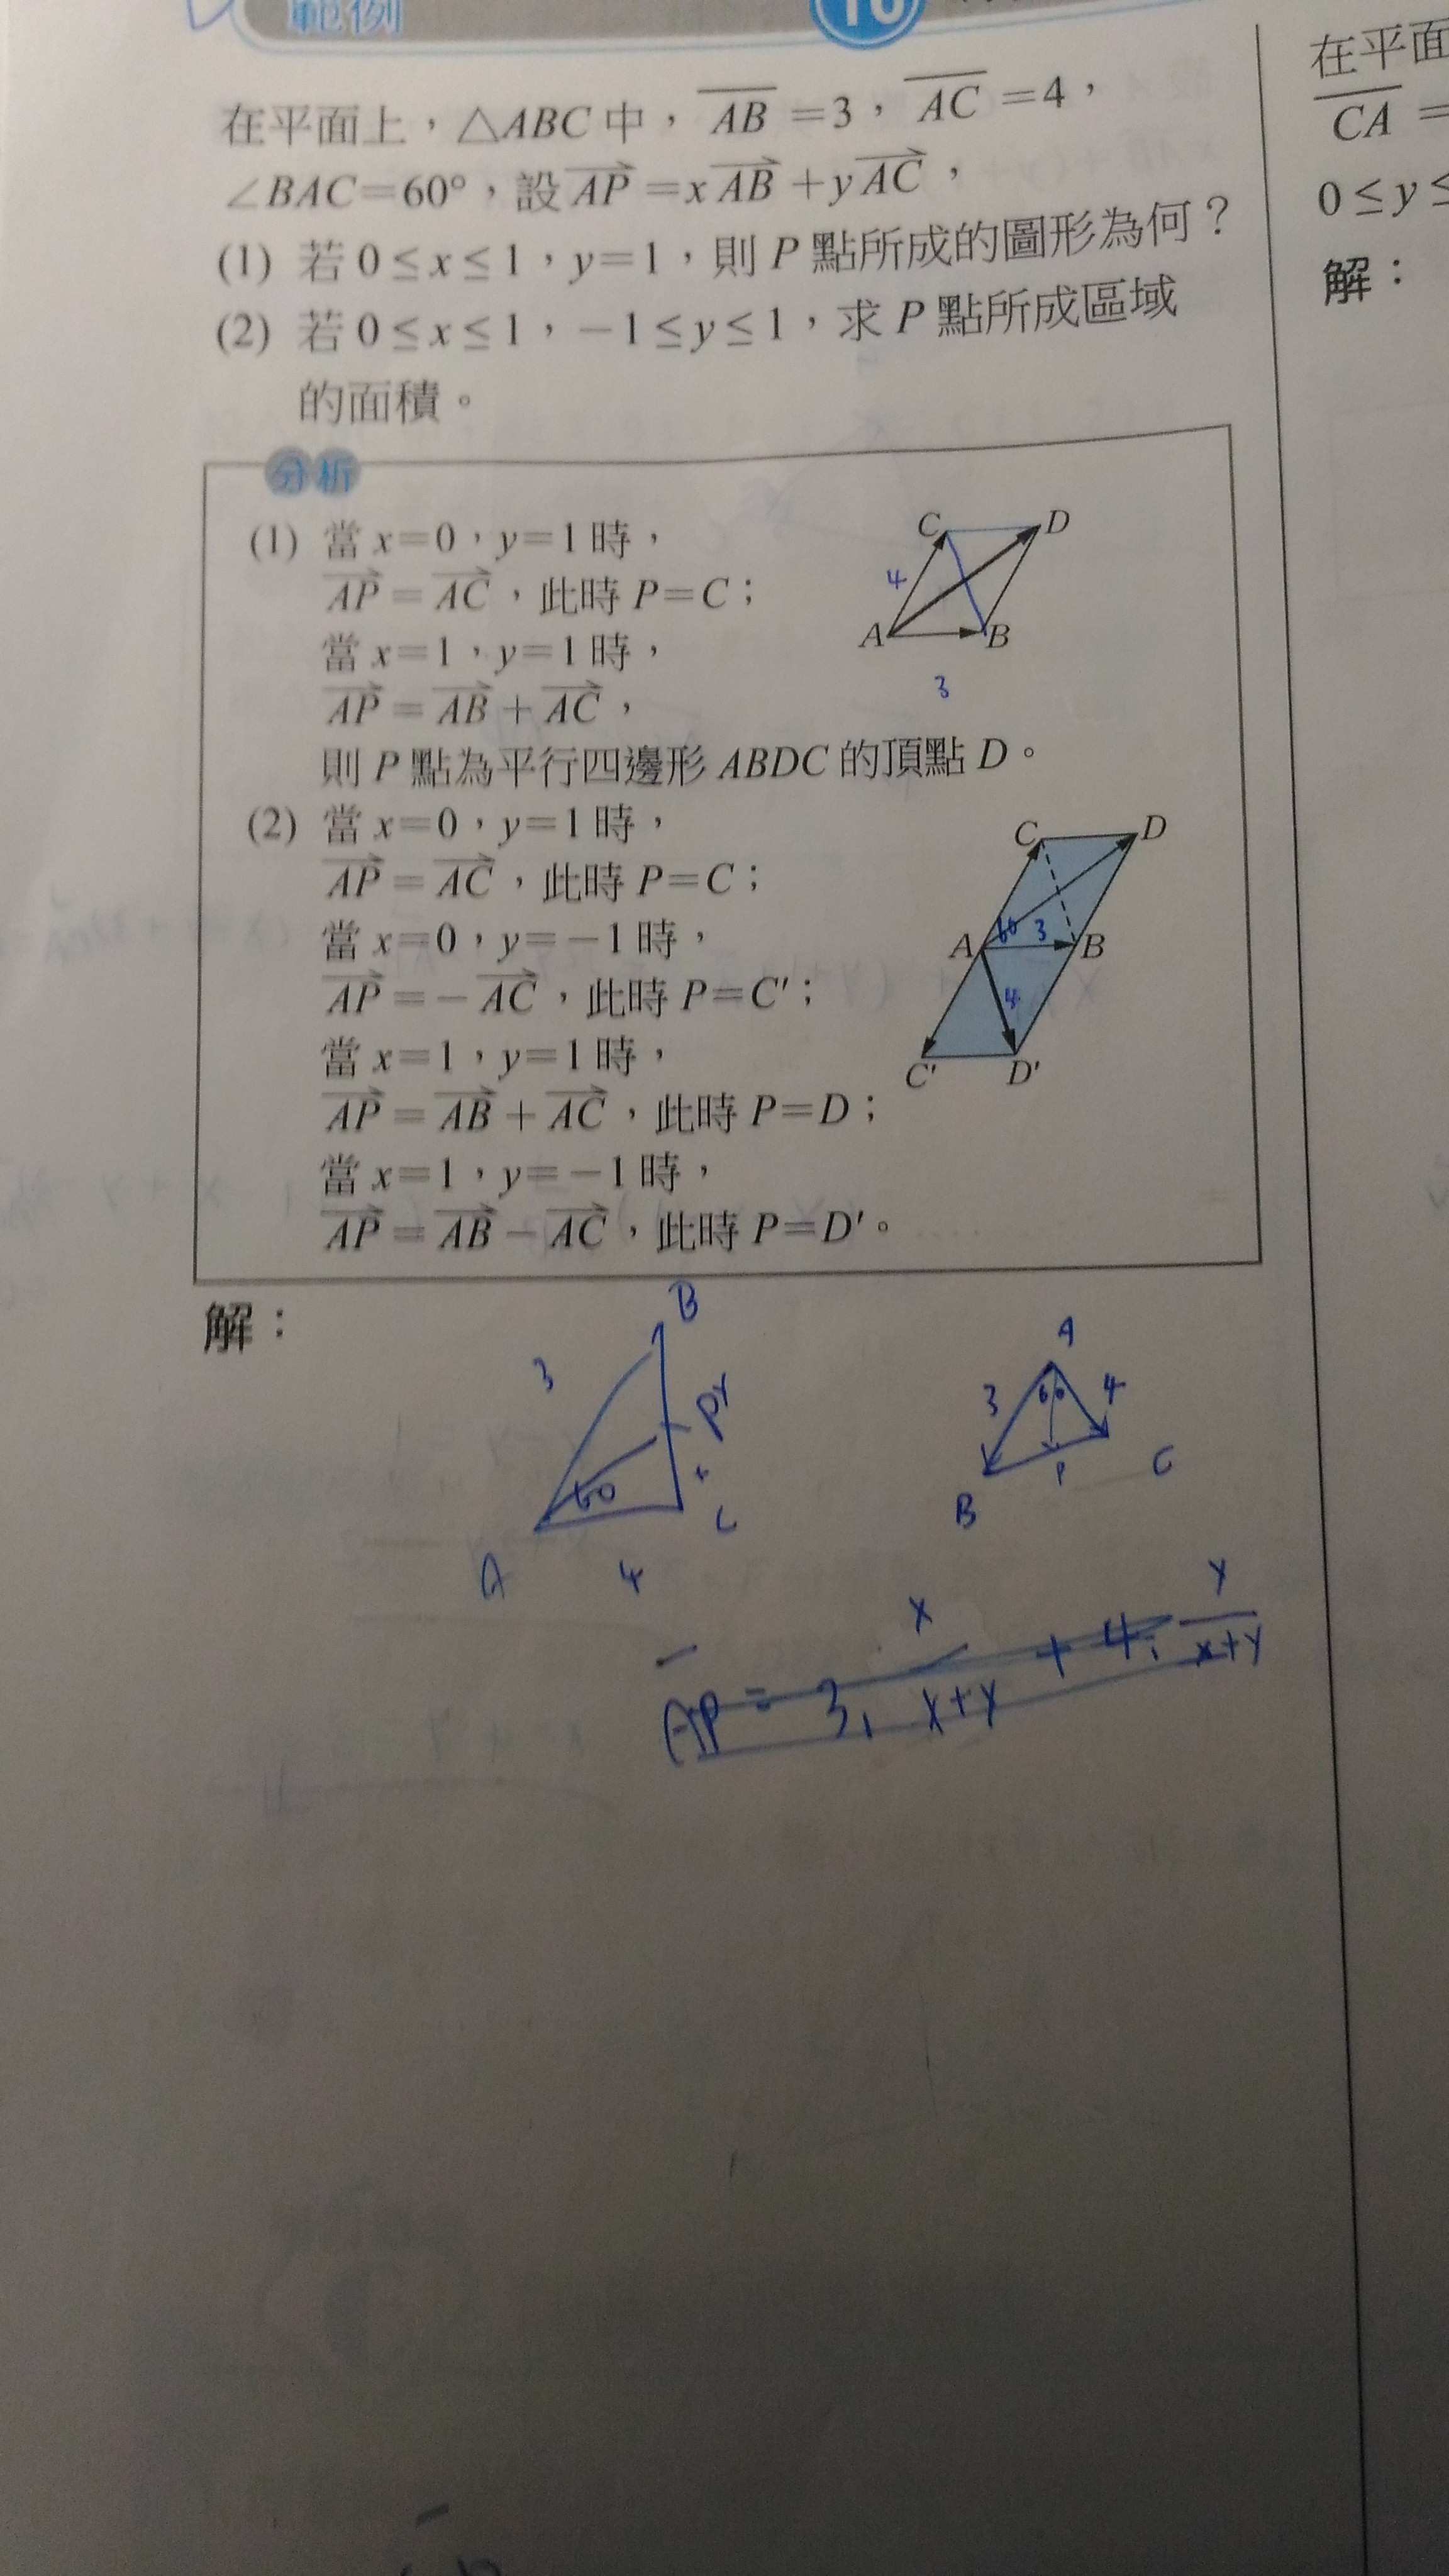 範例
10
在平面上，△ABC中，AB=3，AC=4，
∠BAC=60°，設AP=xAB+yAC，
(1) 若0≤x≤1，y=1，則P點所成的圖形為何？
(2) 若0≤x≤1，−1≤y≤1，求P點所成區域
的面積。
分析
(1) 當x=0，y=1時，
AP=AC，此時P=C；
當x=1，y=1時，
AP=AB+AC，
則P點為平行四邊形ABDC的頂點D。
C D
4
A B
3
(2) 當x=0，y=1時，
AP=AC，此時P=C；
當x=0，y=−1時，
AP=−AC，此時P=C'；
當x=1，y=1時，
AP=AB+AC，此時P=D；
當x=1，y=−1時，
AP=AB−AC，此時P=D'。
C D
A 60 3 B
4
C' D'
解：
B
3
P Y
60
A 4 C
A
3 60 4
B P C
AP = 3. x/x+y + 4. y/x+y
在平面
CA =
0≤y≤
解：